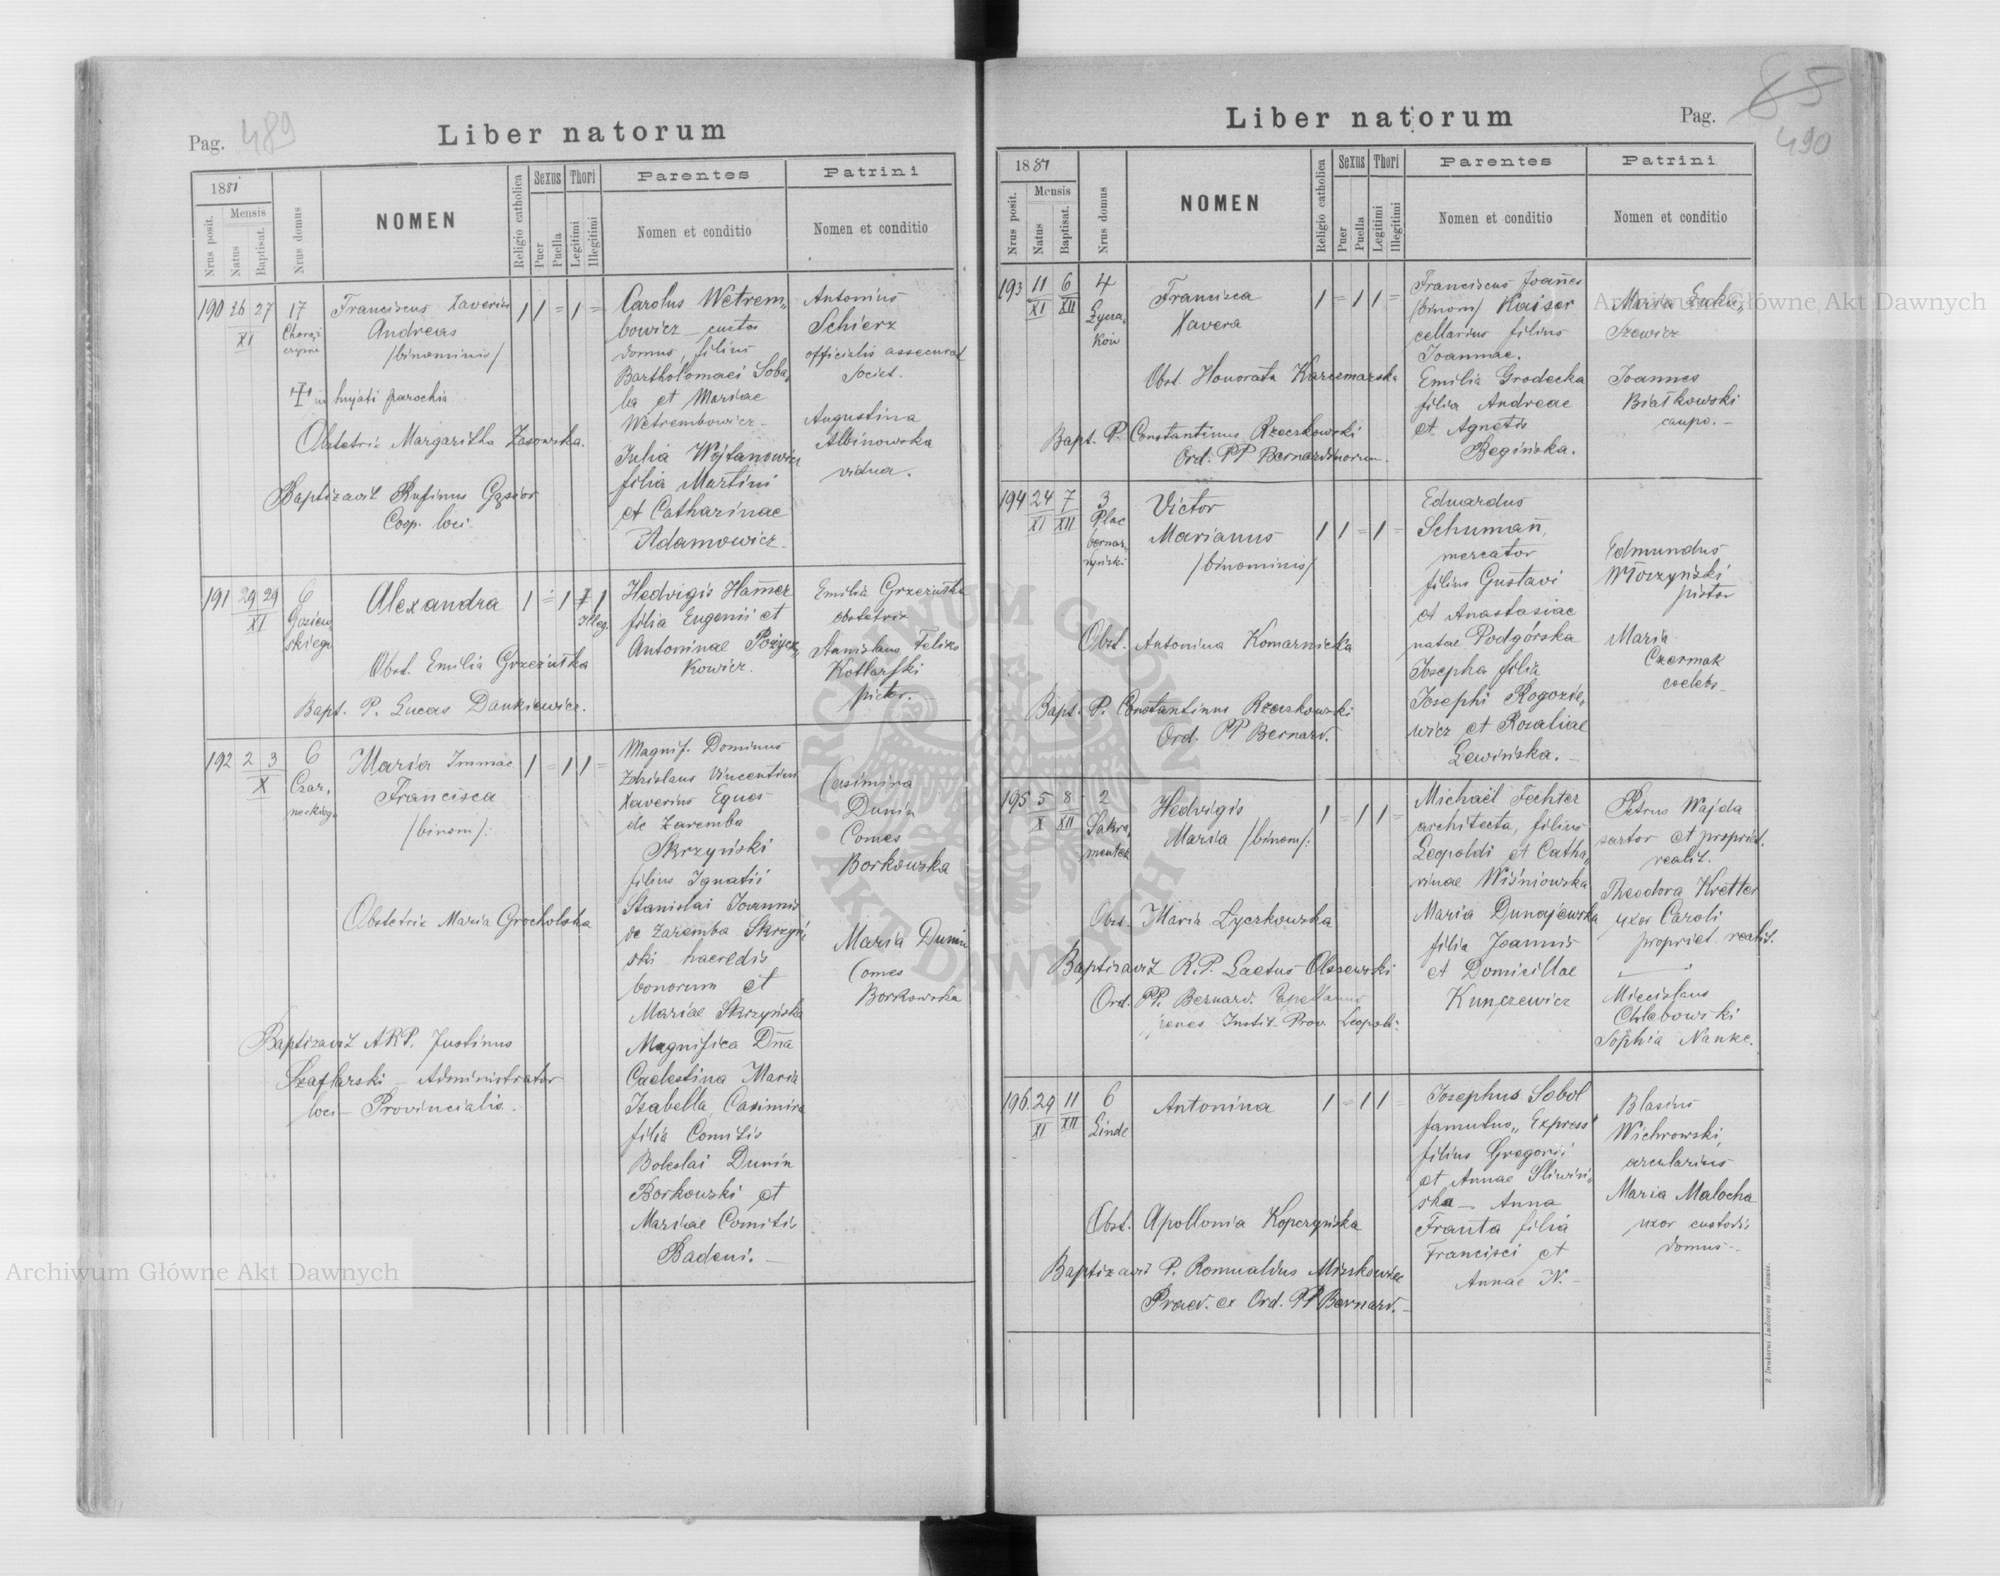 Pag. 489
Liber natorum
1881
Nrus posit.
Mensis
Natus
Baptisat.
Nrus domus
NOMEN
Religio catholica
Sexus
Puer
Puella
Thori
Legitimi
Illegitimi
Parentes
Nomen et conditio
Patrini
Nomen et conditio
190 26 27 XI 17
Franciscus Xaverius
Andreas
/binominis/
in hujati parochia
Obstetrix Margaritha Zasowska.
Baptizavit Rufinus Gąsior
Coop. loci.
1 1 = 1 =
Carolus Wetrem„
bowicz custos
domus, filius
Bartholomaei Soba„
la et Mariae
Wetrembowicz
Julia Wojtanowicz
filia Martini
et Catharinae
Adamowicz.
Antonius
Schierz
officialis assecurat
Societ.
Augustina
Albinowska
vidua.
191 29 29 XI 6
Alexandra
Obst. Emilia Grzezułka
Bapt. P. Lucas Dankiewicz.
1 = 1 1
Illeg.
Hedvigis Hamer
filia Eugenii et
Antoninae Pożycz„
kowicz.
Emilia Grzezułka
obstetrix
Stanislaus Felix
Kotlarski
pictor.
192 2 3 X 6
Czar„
neckiego
Maria Immac
Francisca
/binom/.
Obstetrix Maria Grocholska
Baptizavit ARP. Justinus
Szaflarski – Administrator
loci – Provincialis.
1 = 1 1 =
Magnif. Dominus
Zdzislaus Vincentius
Xaverius Eques
de Zaremba
Skrzyński
filius Ignatii
Stanislai Joannis
de Zaremba Skrzyń„
ski haeredis
bonorum et
Mariae Skrzyńska
Magnifica Dna
Caelestina Maria
Isabella, Casimira
filia Comitis
Boleslai Dunin
Borkowski et
Mariae Comitis
Badeni. –
Casimira
Dunin
Comes
Borkowska
Maria Dunin
Comes
Borkowska
Pag. 85
490
Liber natorum
1881
Nrus posit.
Mensis
Natus
Baptisat.
Nrus domus
NOMEN
Religio catholica
Sexus
Puer
Puella
Thori
Legitimi
Illegitimi
Parentes
Nomen et conditio
Patrini
Nomen et conditio
193 11 XI 6 XII 4
Francisca
Xavera
Obst. Honorata Karczmarska
Bapt. P. Constantinus Rzeszkowski
Ord. PP Bernardinorum.
1 = 1 1 =
Franciscus Joanes
/binom/ Kaiser
cellarius filius
Joannae.
Emilia Grodecka
filia Andreae
et Agnetis
Begińska.
Maria Łuka„
szewicz
Joannes
Białkowski
caupo. –
194 24 XI 7 XII 3
Plac
bernar„
dyński
Victor
Marianus
/binominis/
Obst. Antonina Komarnicka
Bapt. P. Constantinus Rzeszkowski
Ord. PP Bernard.
1 1 = 1 =
Eduardus
Schumann,
mercator
filius Gustavi
et Anastasiae
natae Podgórska
Josepha filia
Josephi Rogozie„
wicz et Rosaliae
Lewińska. –
Edmundus
Włoszyński
pistor
Maria
Czermak
coelebs
195 5 X 8 XII 2
Sakra„
mentek
Hedvigis
Maria /binom/.
Obst. Maria Łyczkowska
Baptizavit R.P. Laetus Olszewski
Ord. PP. Bernard. Capellanus
penes Instit. Prov. Leopoli.
1 = 1 1 =
Michaël Fechter
architecta, filius
Leopoldi et Catha„
rinae Wiśniowska
Maria Dunajewska
filia Joannis
et Domicillae
Kunczewicz
Petrus Wajda
sartor et propriet.
realit.
Theodora Kretter
uxor Caroli
propriet. realit.
Miecislaus
Chlebowski
Sophia Nanke.
196 29 XI 11 XII 6
Linde
Antonina
Obst. Apollonia Kopczyńska
Baptizavit P. Romualdus Miszkowicz
Praed. ex Ord. PP Bernard. –
1 = 1 1 =
Josephus Sobol
famulus „Express"
filius Gregorii
et Annae Śliwiń„
ska – Anna
Franta filia
Francisci et
Annae N. –
Blasius
Wichrowski,
arcularius
Maria Malocha
uxor custodis
domus –
Z Drukarni Ludowej we Lwowie.
Archiwum Główne Akt Dawnych
Archiwum Główne Akt Dawnych
ARCHIWUM GŁÓWNE AKT DAWNYCH